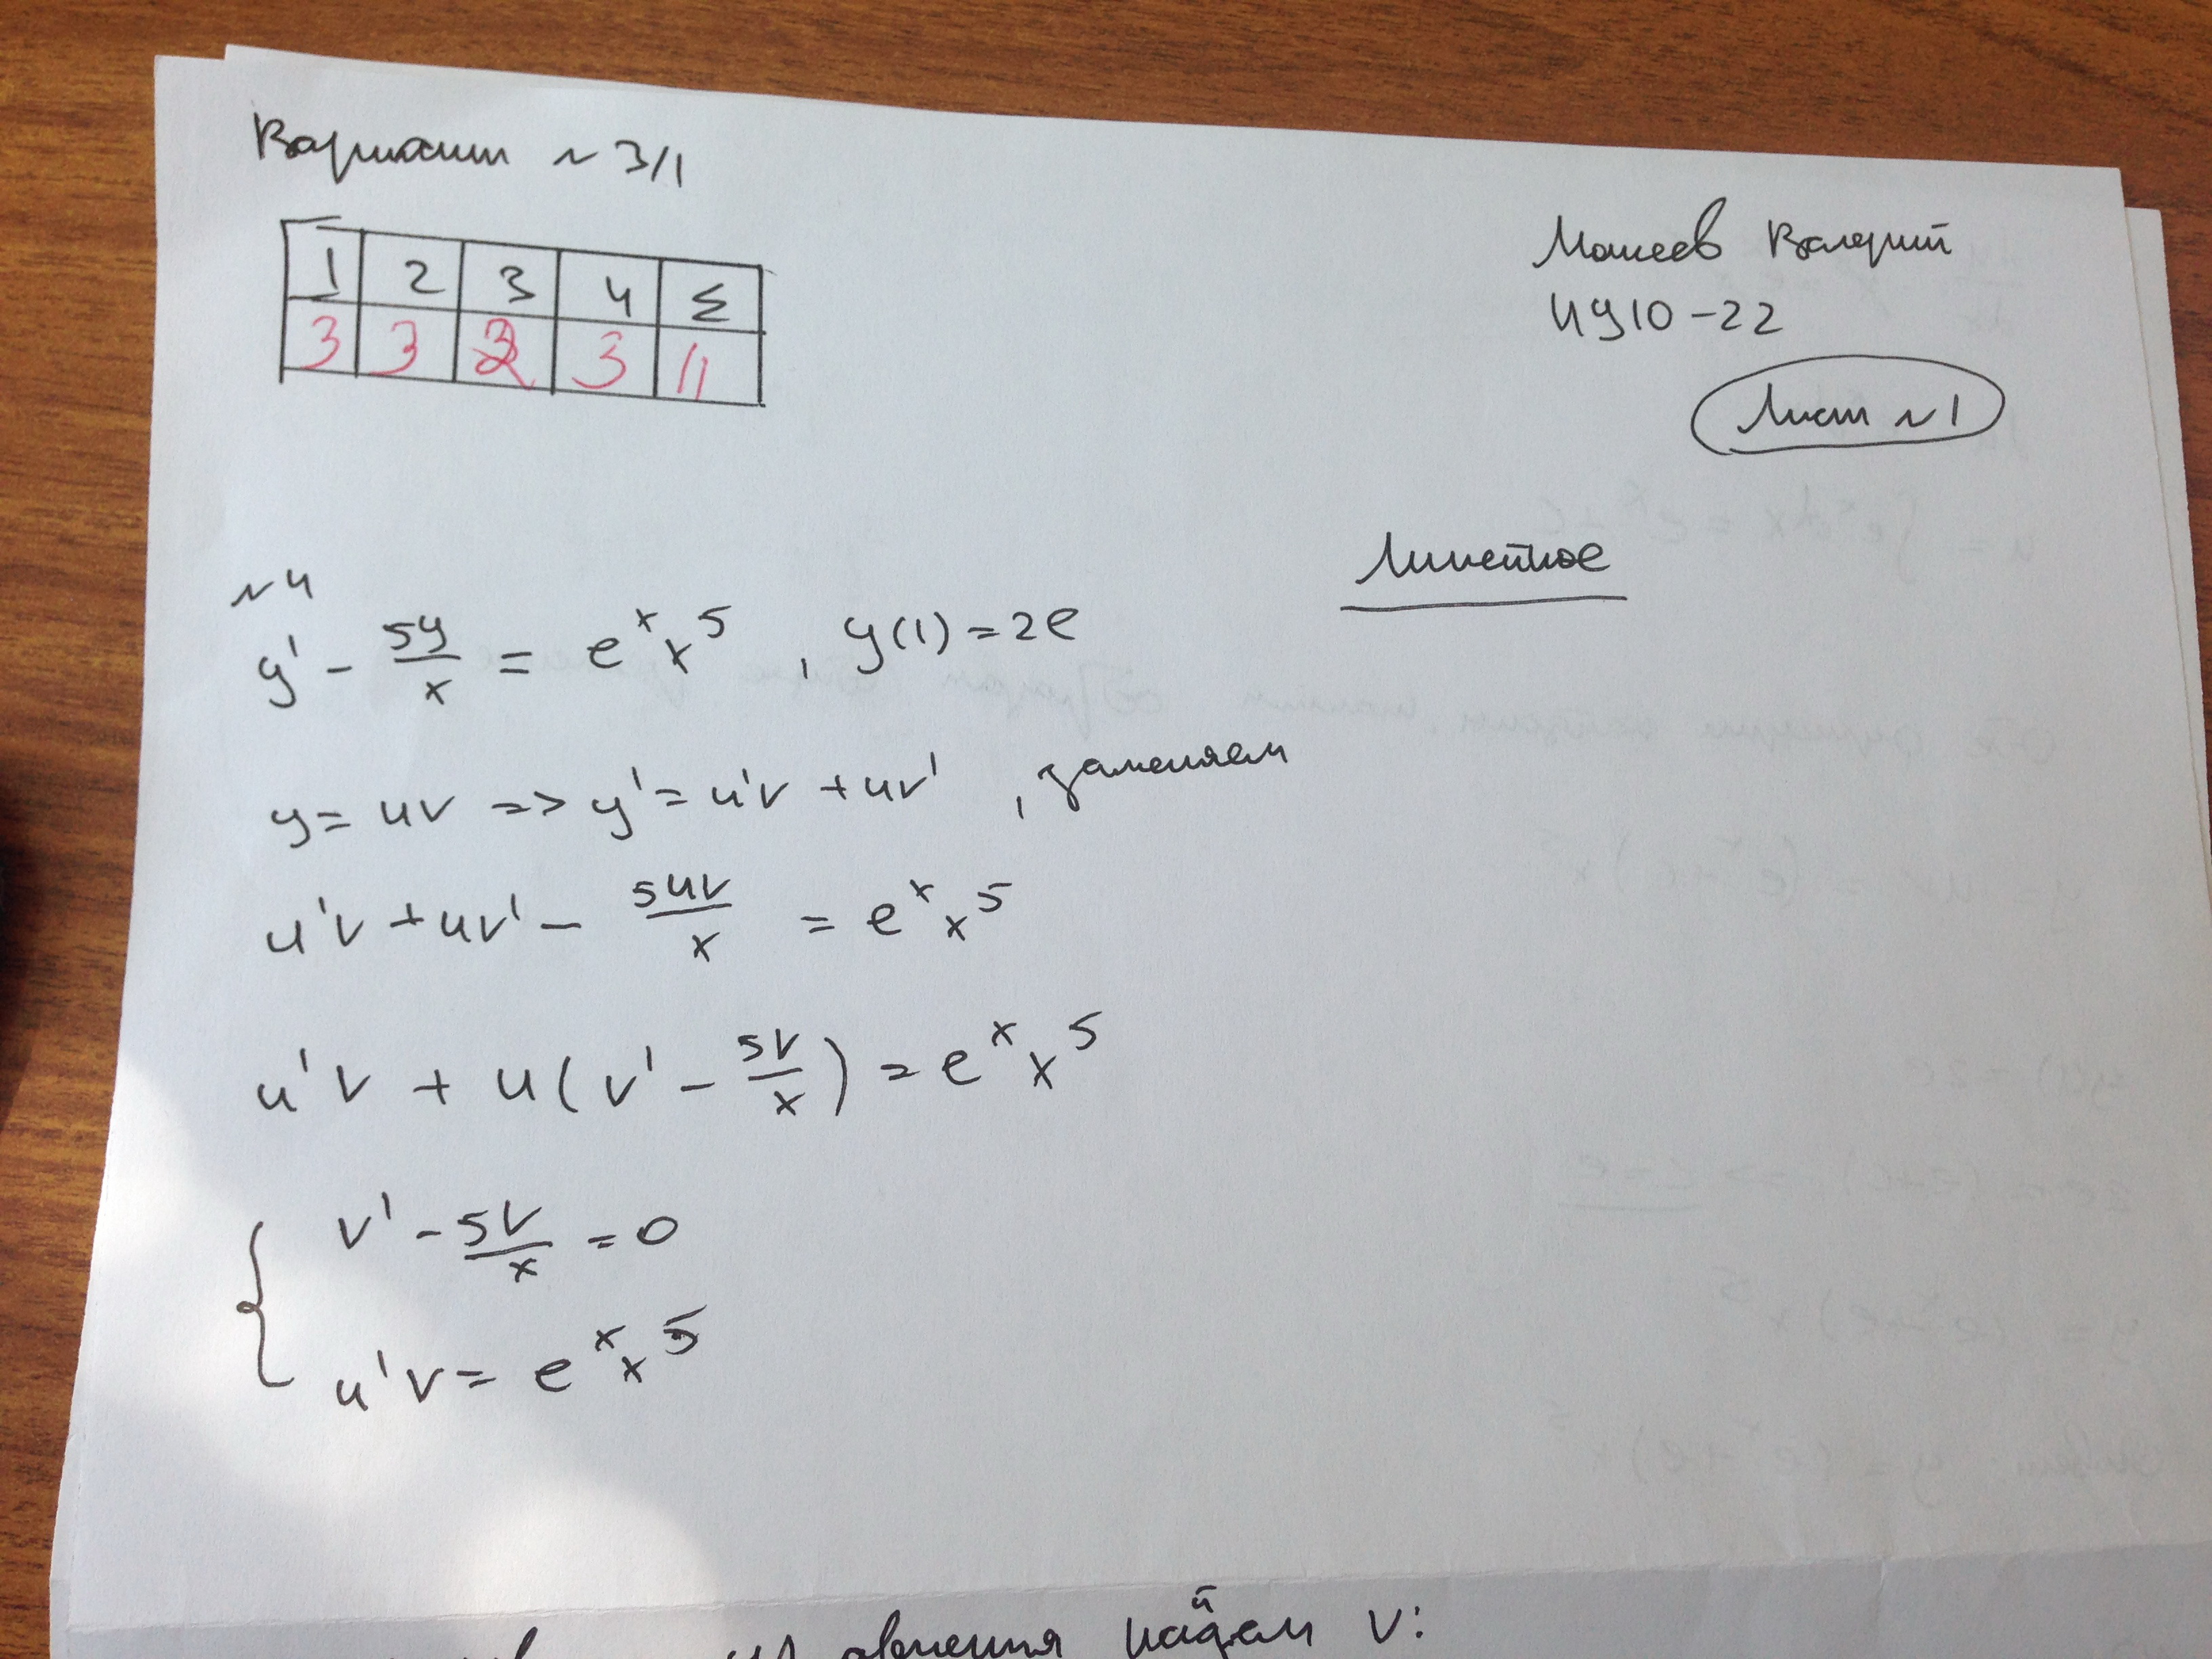 Вариант №3/1
1 2 3 4 Σ
3 3 2 3 11
Моисеев Валерий
ИУ10-22
Лист №1
Линейное
№4
y' - 5y/x = e^x x^5 , y(1) = 2e
y = uv => y' = u'v + uv' , заменяем
u'v + uv' - 5uv/x = e^x x^5
u'v + u(v' - 5v/x) = e^x x^5
{ v' - 5v/x = 0
u'v = e^x x^5
найдем v: